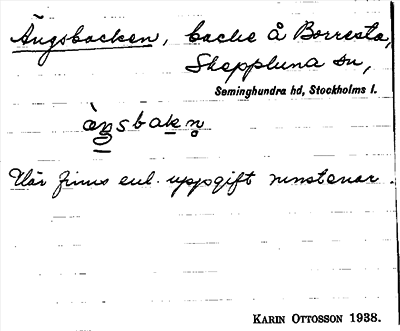 Ängsbacken, backe å Borresta,
Skepptuna sn,
Seminghundra hd, Stockholms l.
àŋsbakn̥
Här finns enl. uppgift runstenar.
KARIN OTTOSSON 1938.